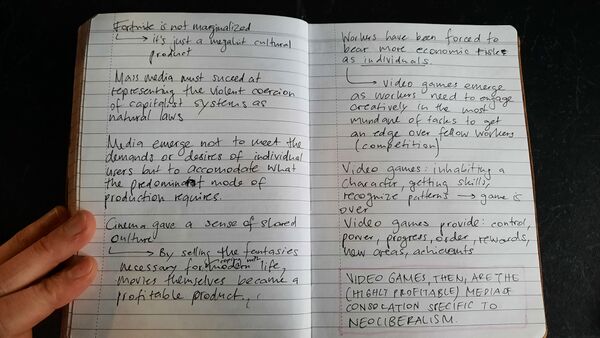 Fortnite is not marginalized
→ it's just a megahit cultural
product
Mass media must succeed at
representing the violent coercion
of capitalist systems as
natural laws
Media emerge not to meet the
demands or desires of individual
users but to accomodate what
the predominant mode of
production requires.
Cinema gave a sense of shared
culture
→ By selling the fantasies
necessary for modern life,
movies themselves became a
profitable product.
Workers have been forced to
bear more economic risks
as individuals.
→ Video games emerge
as workers need to engage
creatively in the most
mundane of tasks to get
an edge over fellow workers
(competition)
Video games: inhabiting a
character, getting skills,
recognize patterns → game is
over
Video games provide: control,
power, progress, order, rewards,
new areas, achievements
VIDEO GAMES, THEN, ARE THE
(HIGHLY PROFITABLE) MEDIA OF
CONSOLATION SPECIFIC TO
NEOCIBERALISM.